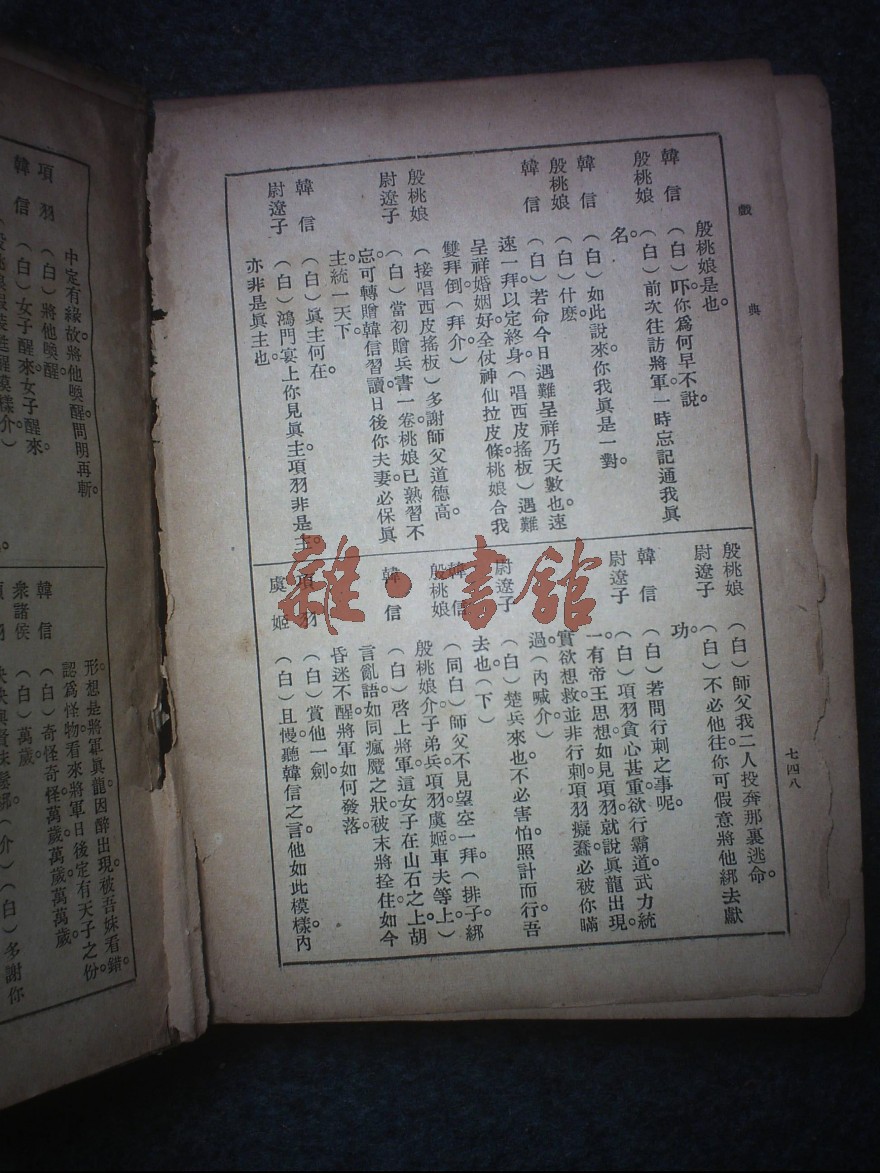 戲典
七四八
殷桃娘是也。
韓信（白）吓你爲何早不說。
殷桃娘（白）前次往訪將軍一時忘記通我眞
名。
韓信（白）如此說來你我眞是一對。
殷桃娘（白）什麽
韓信（白）若命今日遇難呈祥乃天數也速
速一拜以定終身（唱西皮搖板）遇難
呈祥婚姻好全仗神仙拉皮條桃娘合我
雙拜倒（拜介）
殷桃娘（接唱西皮搖板）多謝師父道德高。
尉遼子（白）當初贈兵書一卷桃娘已熟習不
忘可轉贈韓信習讀日後你夫妻必保眞
主統一天下。
韓信（白）眞主何在。
尉遼子（白）鴻門宴上你見眞主項羽非是主
亦非是眞主也。
殷桃娘（白）師父我二人投奔那裏逃命。
尉遼子（白）不必他往你可假意將他綁去獻
功。
韓信（白）若問行刺之事呢。
尉遼子（白）項羽貪心甚重欲行霸道武力統
一有帝王思想如見項羽就說眞龍出現。
實欲想救並非行刺項羽癡蠢必被你瞞
過。（內喊介）
尉遼子（白）楚兵來也不必害怕照計而行吾
去也。（下）
韓信殷桃娘（同白）師父不見望空一拜。（排子綁
殷桃娘介子弟兵項羽虞姬車夫等上）
韓信（白）啓上將軍這女子在山石之上胡
言亂語如同瘋魔之狀被末將拴住如今
昏迷不醒將軍如何發落。
項羽（白）賞他一劍。
虞姬（白）且慢聽韓信之言他如此模樣內
中定有緣故將他喚醒問明再斬。
項羽（白）將他喚醒。
韓信（白）女子醒來女子醒來。
形想是將軍眞龍因醉出現被吾妹看錯。
認爲怪物看來將軍日後定有天子之份。
韓信（白）奇怪奇怪萬歲萬歲萬萬歲。
衆諸侯（白）萬歲。
雜·書館